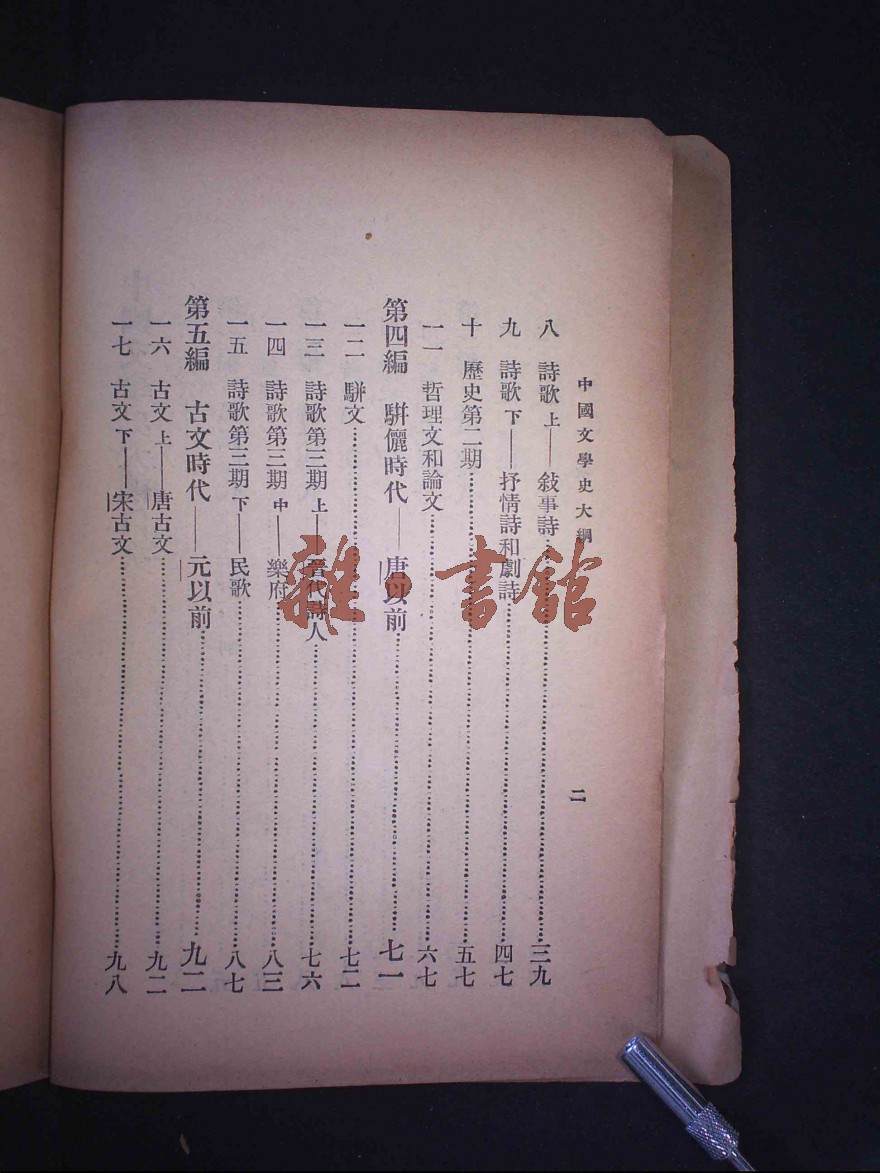 中國文學史大綱
二
八 詩歌 上——敍事詩……三九
九 詩歌 下——抒情詩和劇詩……四七
十 歷史第二期……五七
一一 哲理文和論文……六七
第四編 駢儷時代——唐以前……七一
一二 駢文……七二
一三 詩歌第三期 上——晉代詩人……七六
一四 詩歌第三期 中——樂府……八三
一五 詩歌第三期 下——民歌……八七
第五編 古文時代——元以前……九二
一六 古文 上——唐古文……九二
一七 古文 下——宋古文……九八
雜·書館